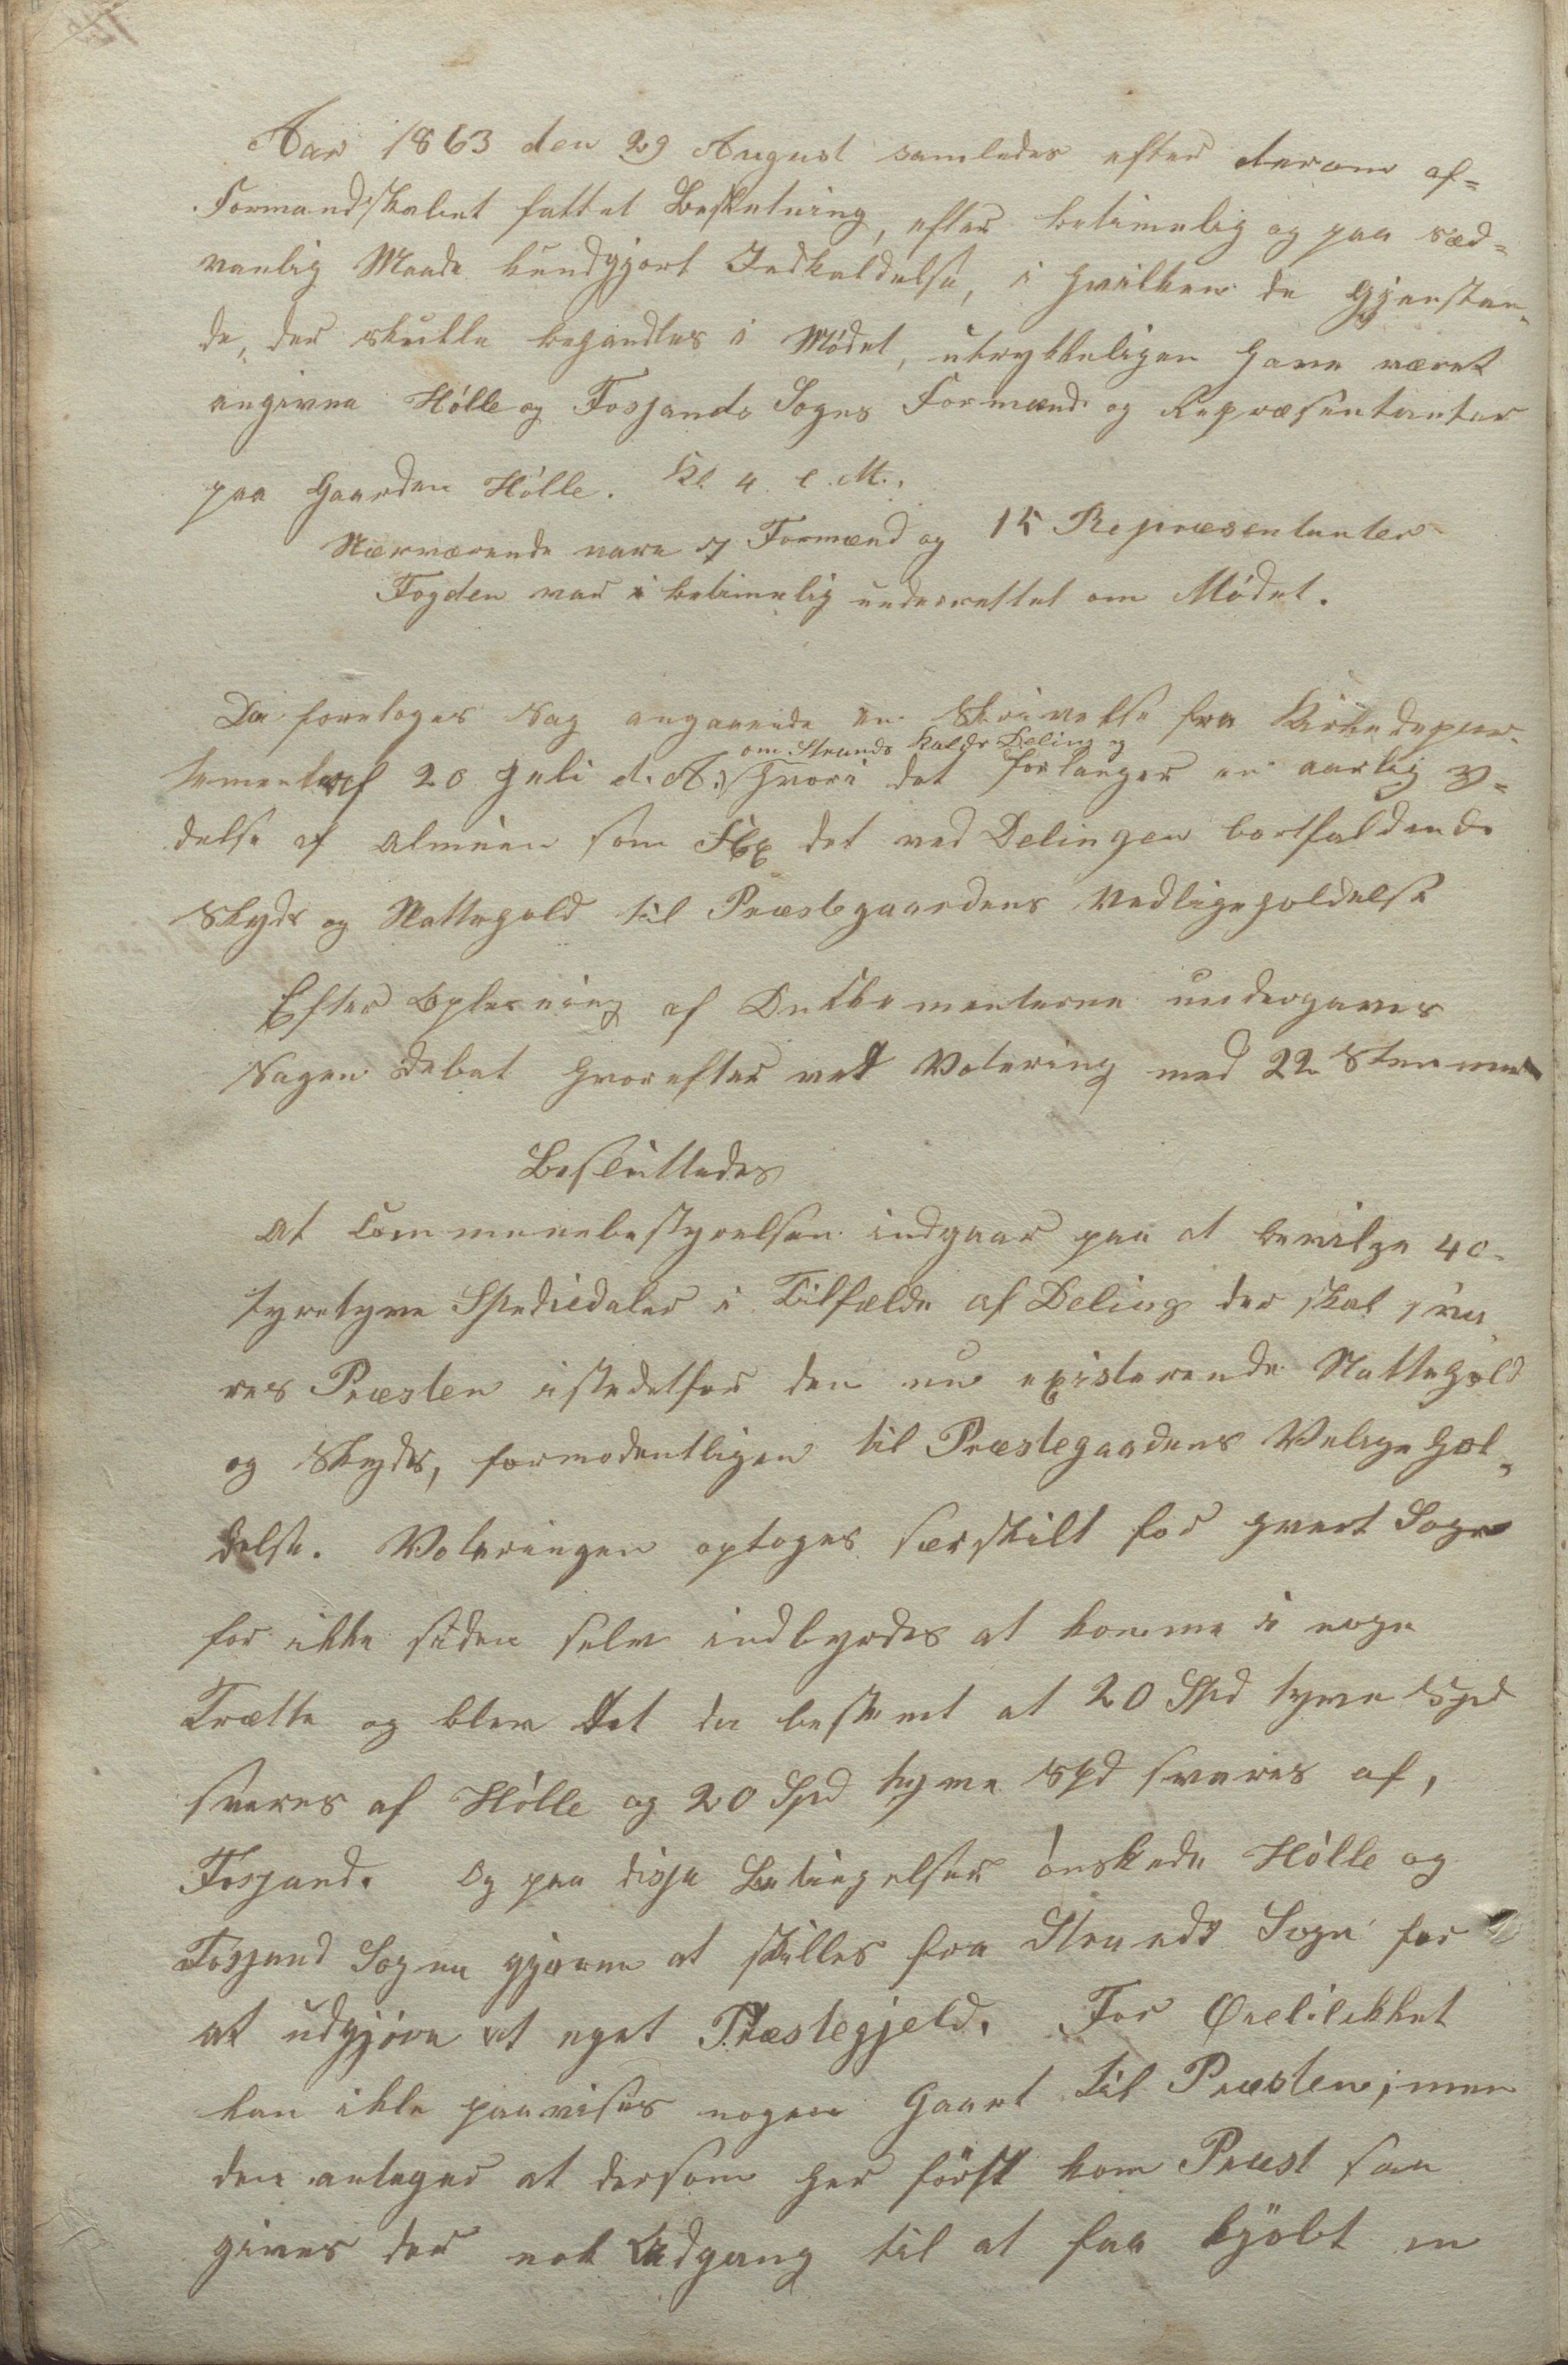 Aar 1863 den 29 August samledes efter derom af-
Formandskabet fattet Beslutning, efter betimelig og paa sæd-
vanlig Maade kundgjort Indkaldelse, i hvilken de Gjenstan-
de, der skulle behandles i Mødet, utrykkeligen have været
angivne Hølle og Fosjands Sognes Formænd og Repræsentanter
paa Gaarden Hølle. Kl. 4 e.M.,
Nærværende vare 7 Formænd og 15 Repræsentanter
Fogden var i betimelig underrettet om Mødet.
Da foretoges Sag angaaende en Skrivelse fra Kirkedepar-
om Strands Kalds Deling og
tementet af 20 Juli d. A. hvori det forlanger en aarlig Y-
delse af Almuen som for det ved Delingen bortfaldende
Skyds og Nattehold til Præstegaardens Vedligeholdelse
Efter Oplesning af Dokumenterne undergaves
Sagen Debat hvorefter ved Votering med 22 Stemmer
Besluttedes
at Communebestyrelsen indgaar paa at bevilge 40-
fyretyve Speciedaler i Tilfælde af Deling der skal sva-
res Præsten istedetfor den nu existerende Nattehold
og Skyds, formodentligen til Præstegaardens Velige hol-
delse. Voteringen optoges særskilt for hvert Sogn
for ikke siden selv indbyrdes at komme i noge
Trætte og blev det da bestemt at 20 Spd tyve Spd
svares af Hølle og 20 Spd tyve Spd svares af,
Fosjand. Og paa disse Betingelser ønskede Hølle og
Fosjand Sogne gjerne at skilles fra Strands Sogn for
at udgjøre et eget Præstegjeld. For Øieblikket
kan ikke paavises nogen Gaard til Præsten; men
den antages at dersom her først kom Præst saa
gives der nok Adgang til at faa kjøbt en